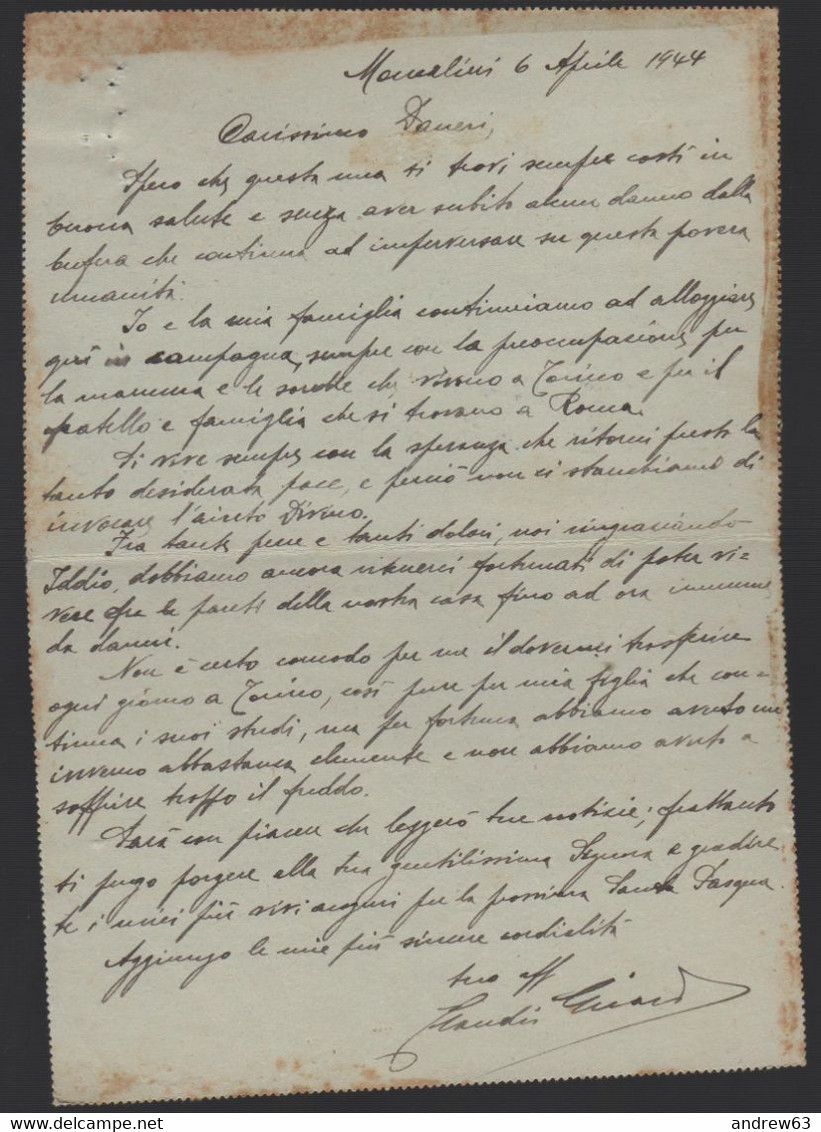 6 Aprile 1944
Carissimo Daneri,
Spero che questa mia ti trovi sempre costì in
buona salute e senza aver subito alcun danno dalla
bufera che continua ad imperversare su questa povera
umanità.
Io e la mia famiglia continuiamo ad alloggiare
qui in campagna, sempre con la preoccupazione per
la mamma e le sorelle che vivono a Torino e per il
fratello e famiglia che si trovano a Roma.
Si vive sempre con la speranza che ritorni presto la
tanto desiderata pace, e perciò non ci stanchiamo di
invocare l'aiuto Divino.
Fra tante pene e tanti dolori, noi ringraziando
Iddio, dobbiamo ancora ritenerci fortunati di poter vi=
vere fra le pareti della nostra casa fino ad ora immune
da danni.
Non è certo comodo per me il dovermi trasferire
ogni giorno a Torino, così pure per mia figlia che con=
tinua i suoi studi, ma per fortuna abbiamo avuto un
inverno abbastanza clemente e non abbiamo avuto a
soffrire troppo il freddo.
Sarà con piacere che leggerò tue notizie; frattanto
ti prego porgere alla tua gentilissima Signora e gradire
te i miei più vivi auguri per la prossima Santa Pasqua.
Aggiungo le mie più sincere cordialità
tuo aff
andrew63